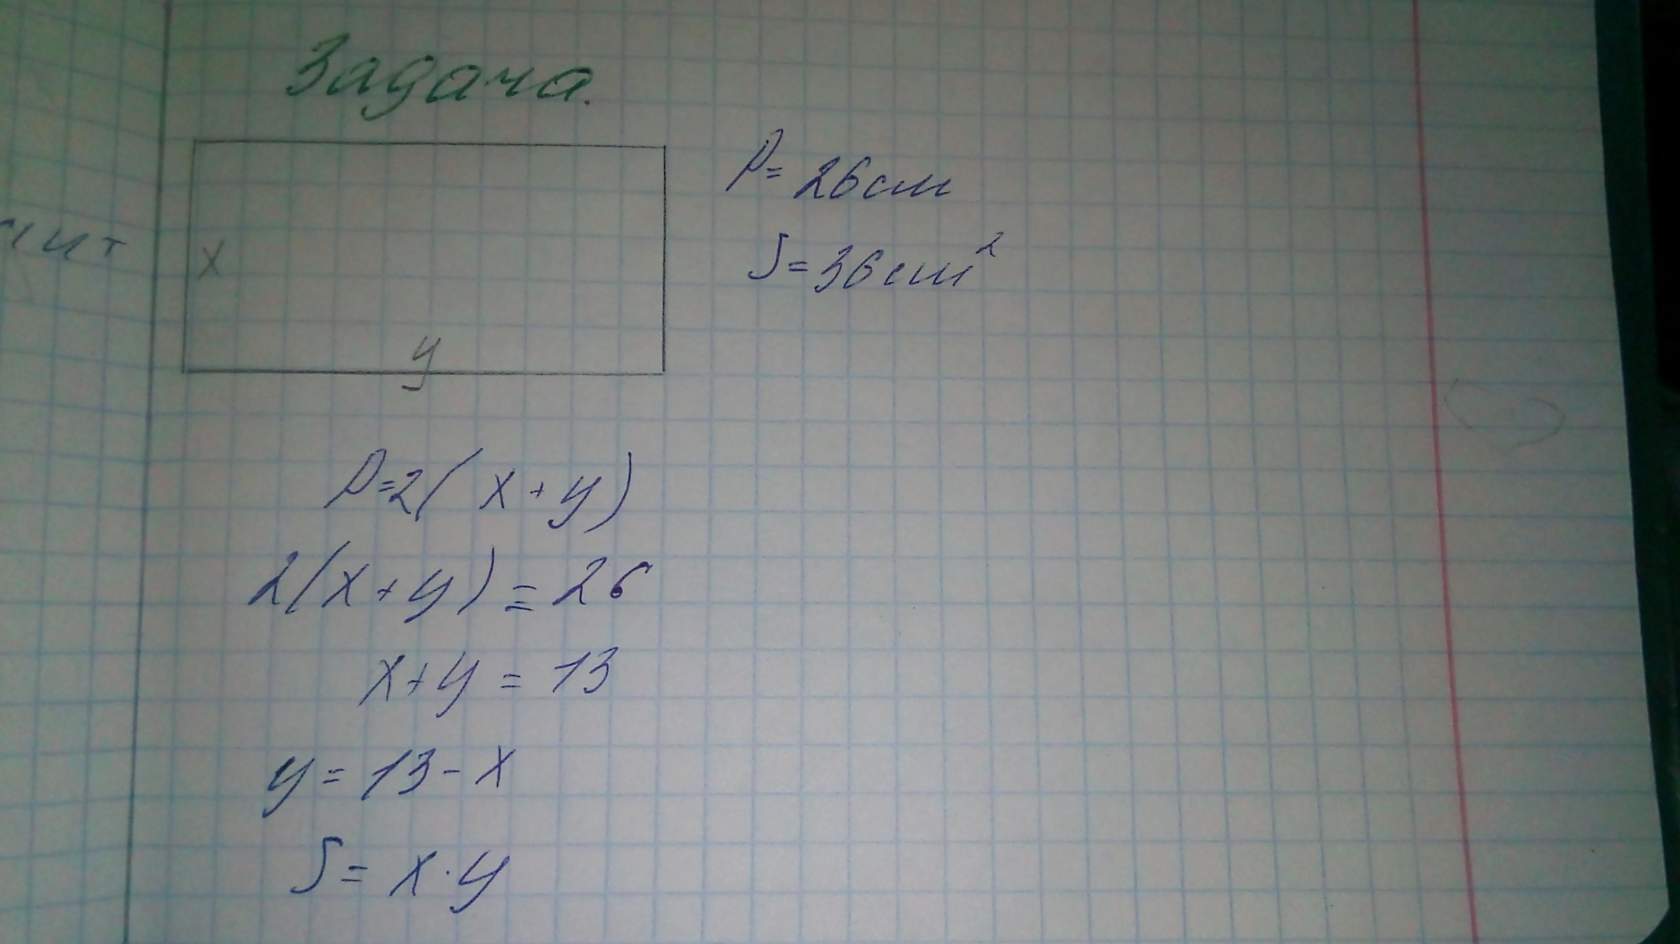 Задача.
P = 26 см
S = 36 см²
x
y
P = 2(x + y)
2(x + y) = 26
x + y = 13
y = 13 - x
S = x · y